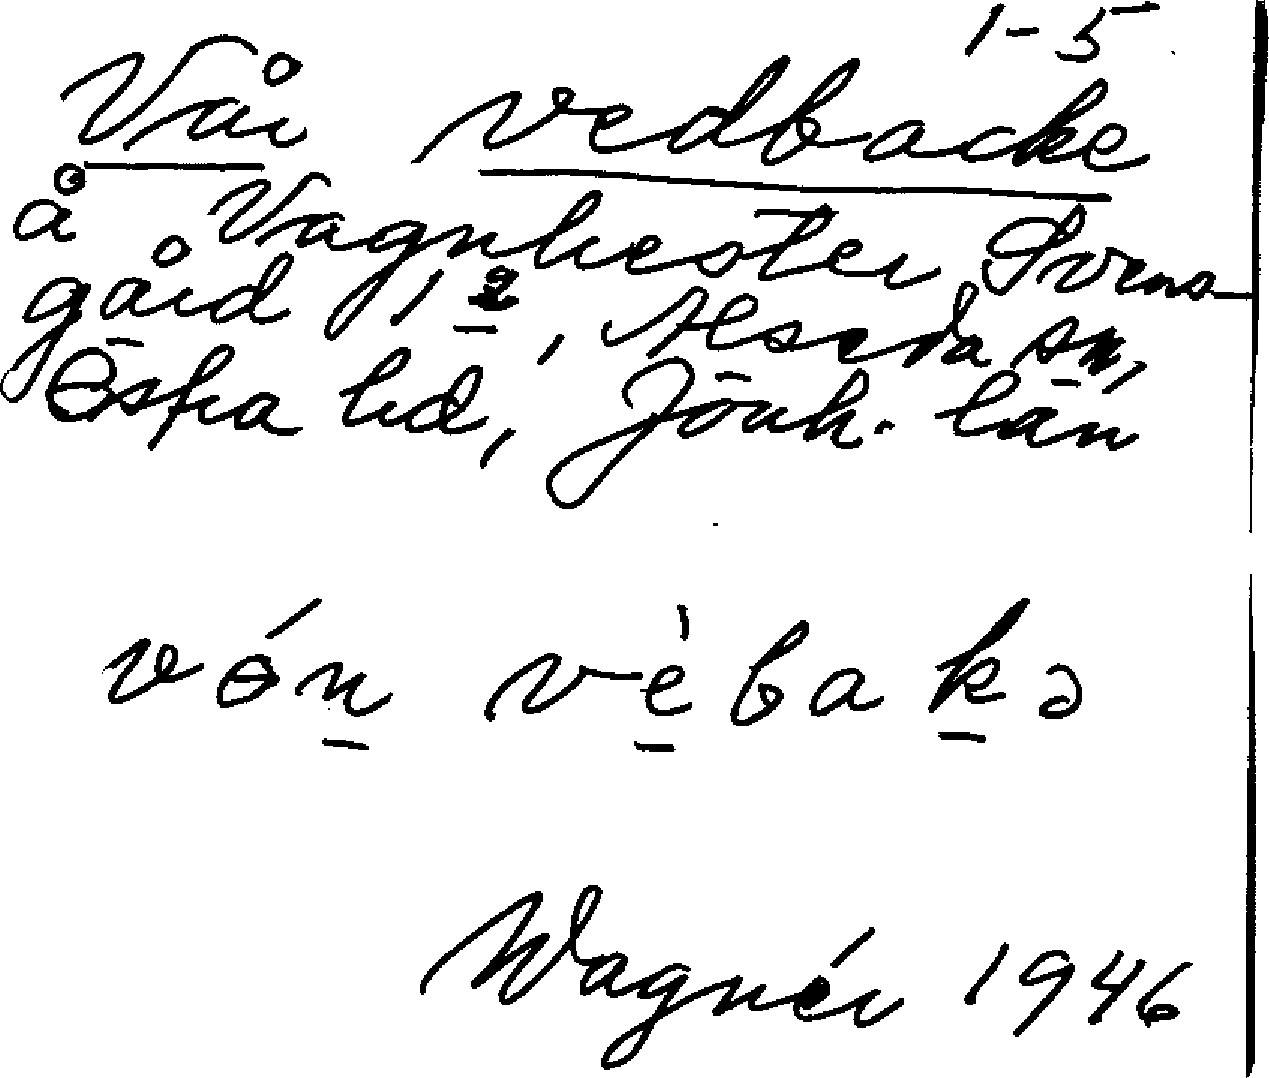 1-5
Vår vedbacke
å Vagnhester Svens-
gård 1 2, Alseda sn,
Östra hd, Jönk. län
vɵ́n vèbakə
Wagnér 1946